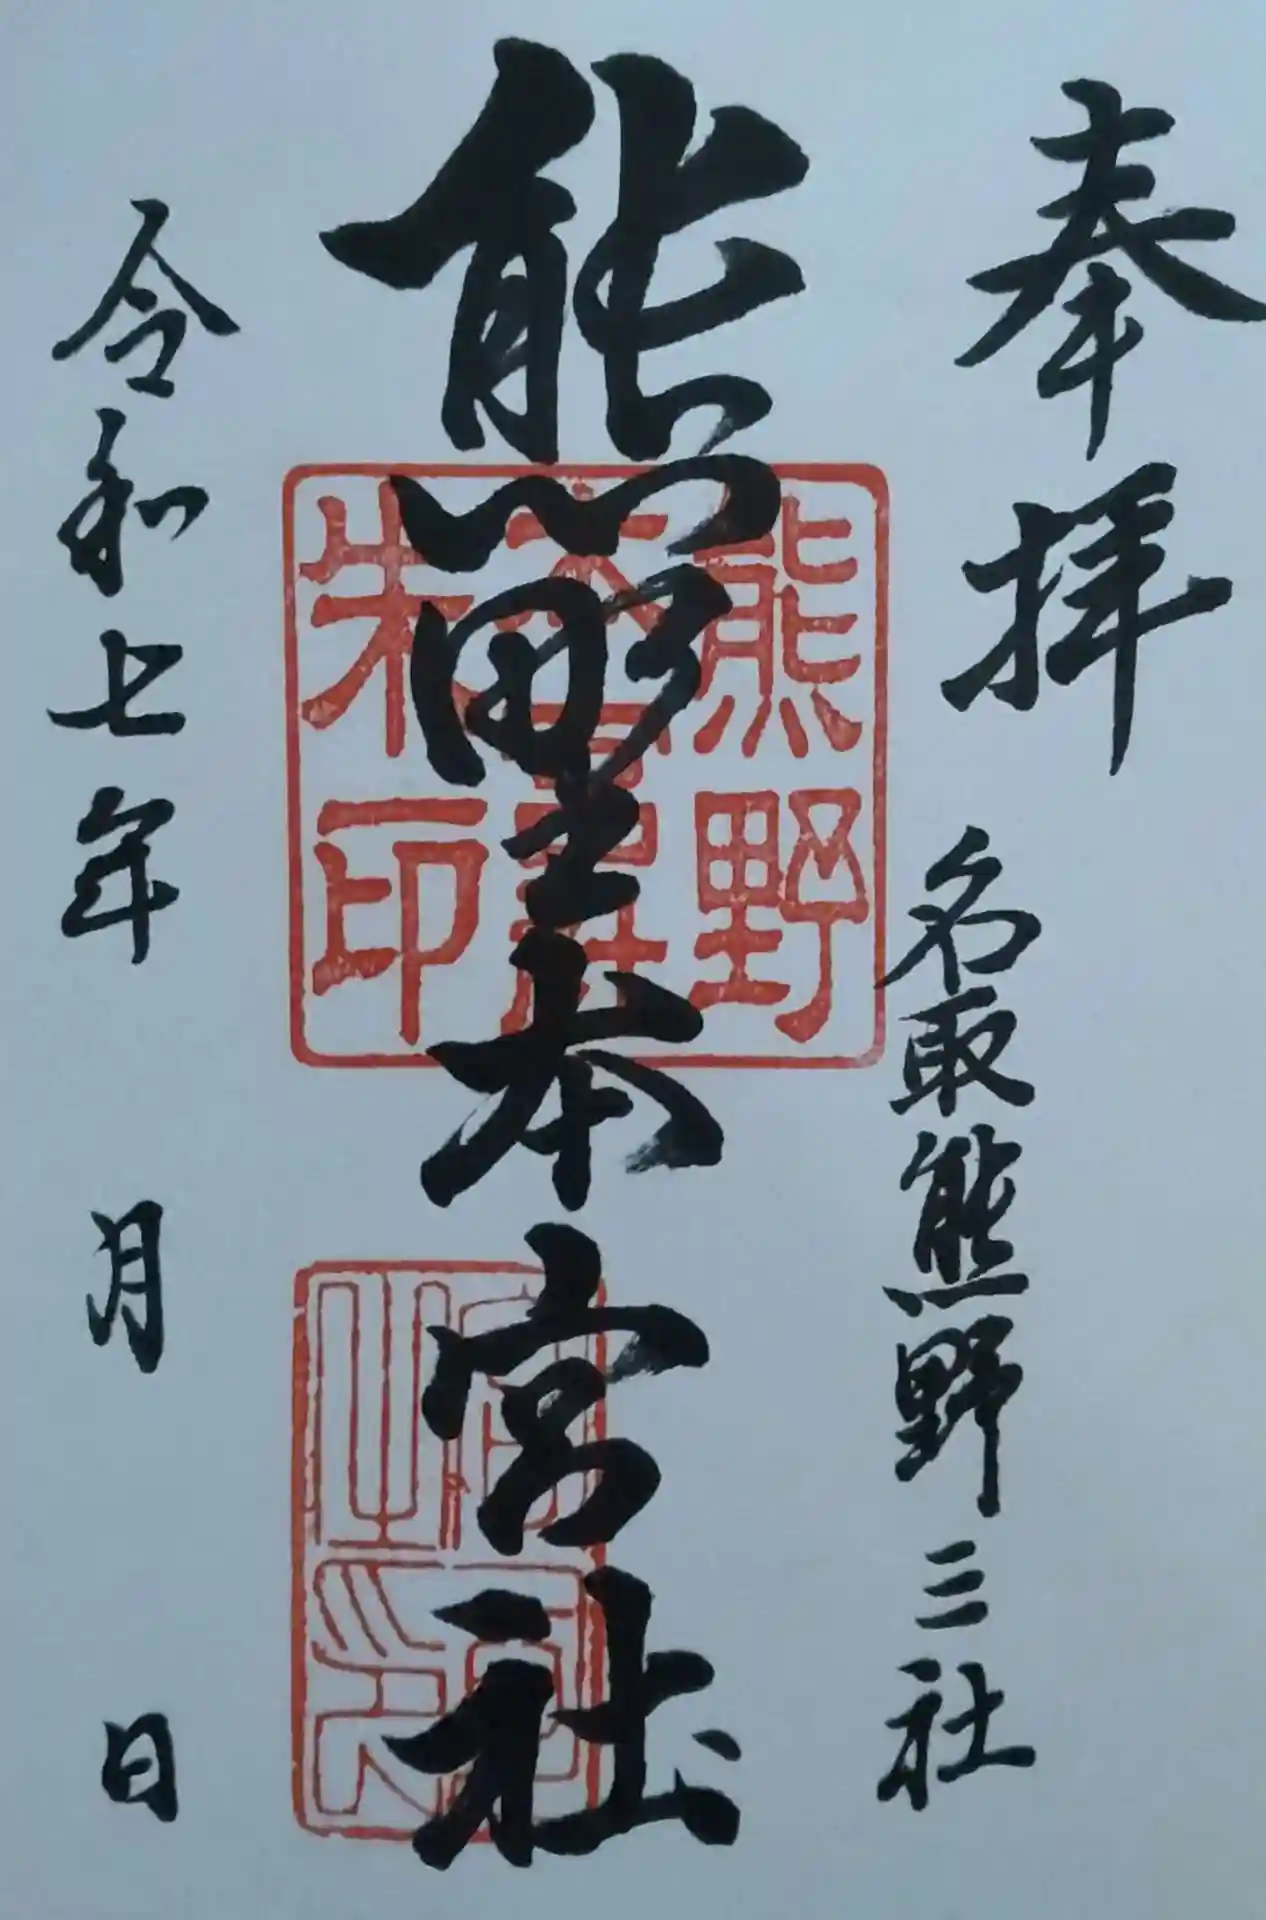 奉拝
名取熊野三社
熊野本宮社
熊野
本宮社
朱印
宮司
之印
令和七年 月 日